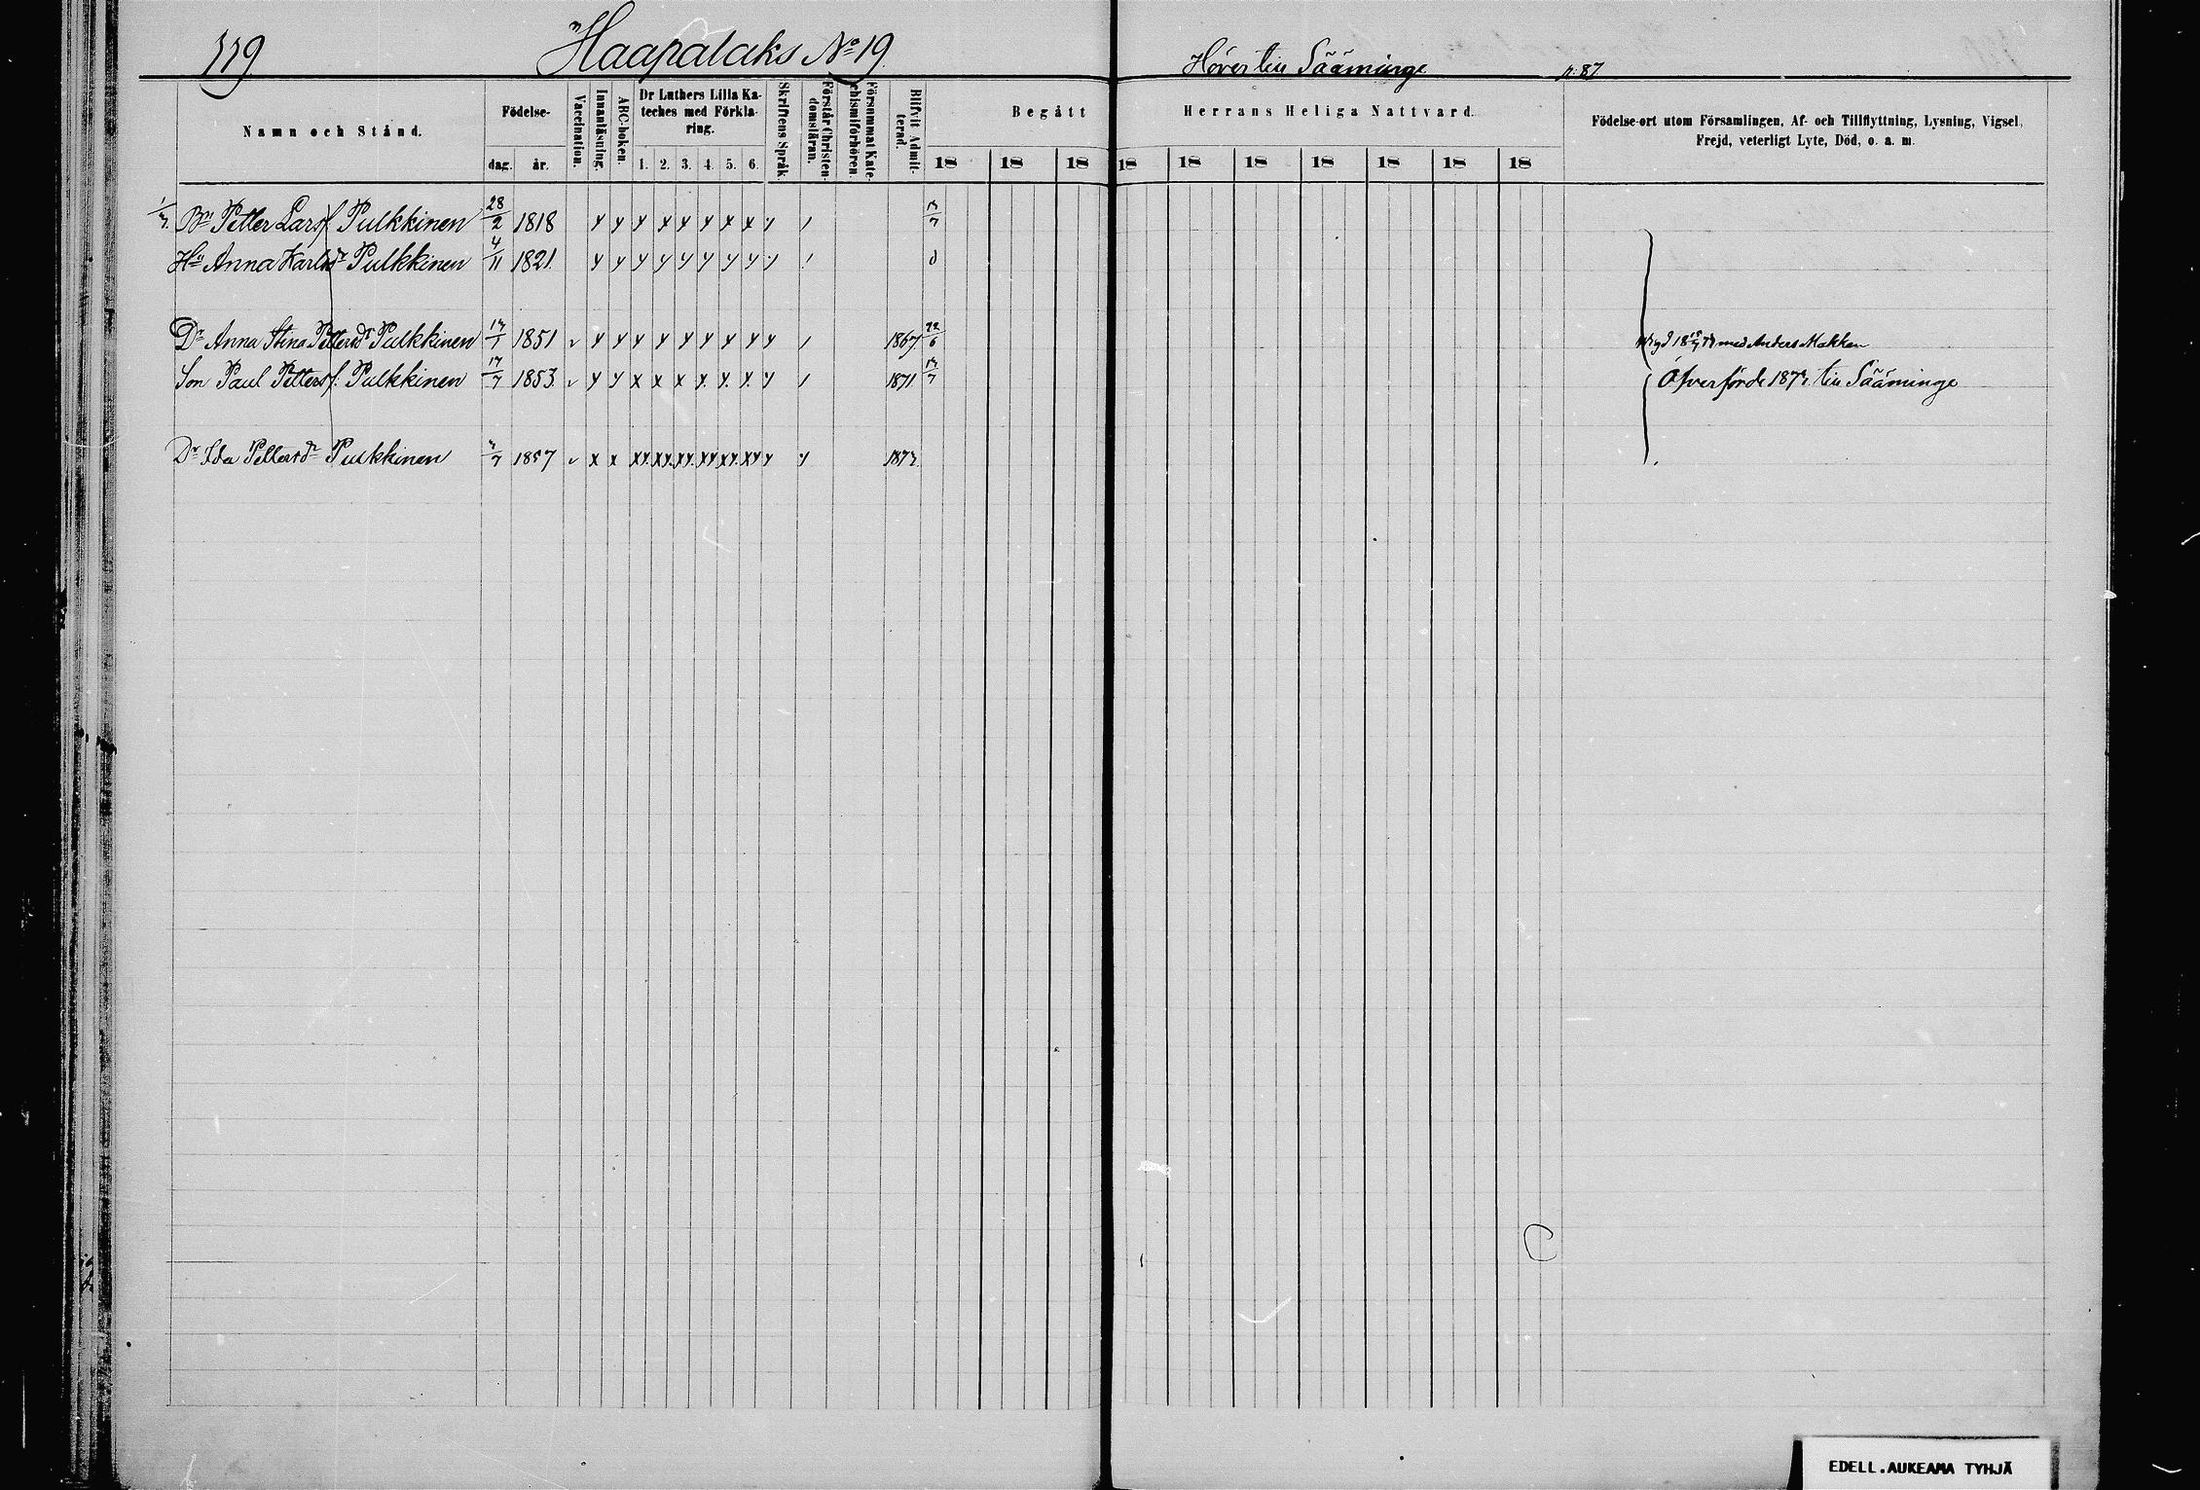 119 Haapalaks No 19. Hörer till Sääminge p. 87
Namn och Stånd.
Födelse-
dag. år.
Vaccination.
Innanläsning.
ABC-boken.
Dr Luthers Lilla Ka-
teches med Förkla-
ring.
1. 2. 3. 4. 5. 6.
Skriftens Språk.
Förstår Christen-
domsläran.
Försummat Kate-
chismiförhören.
Blifvit Admit-
terad.
Begått Herrans Heliga Nattvard.
18 18 18 18 18 18 18 18 18 18
Födelse-ort utom Församlingen, Af- och Tillflyttning, Lysning, Vigsel,
Frejd, veterligt Lyte, Död, o. a. m.
Bn Petter Larsf. Pulkkinen 28/2 1818
Hu Anna Karlsdr Pulkkinen 4/11 1821
Dr Anna Stina Pettersdr Pulkkinen 1851 1867 22/6 med Anders Makkon
Son Paul Pettersf. Pulkkinen 1853 1871 Öfverförde till Sääminge
Dr Ida Pettersdr Pulkkinen 1857
EDELL.AUKEAMA TYHJÄ